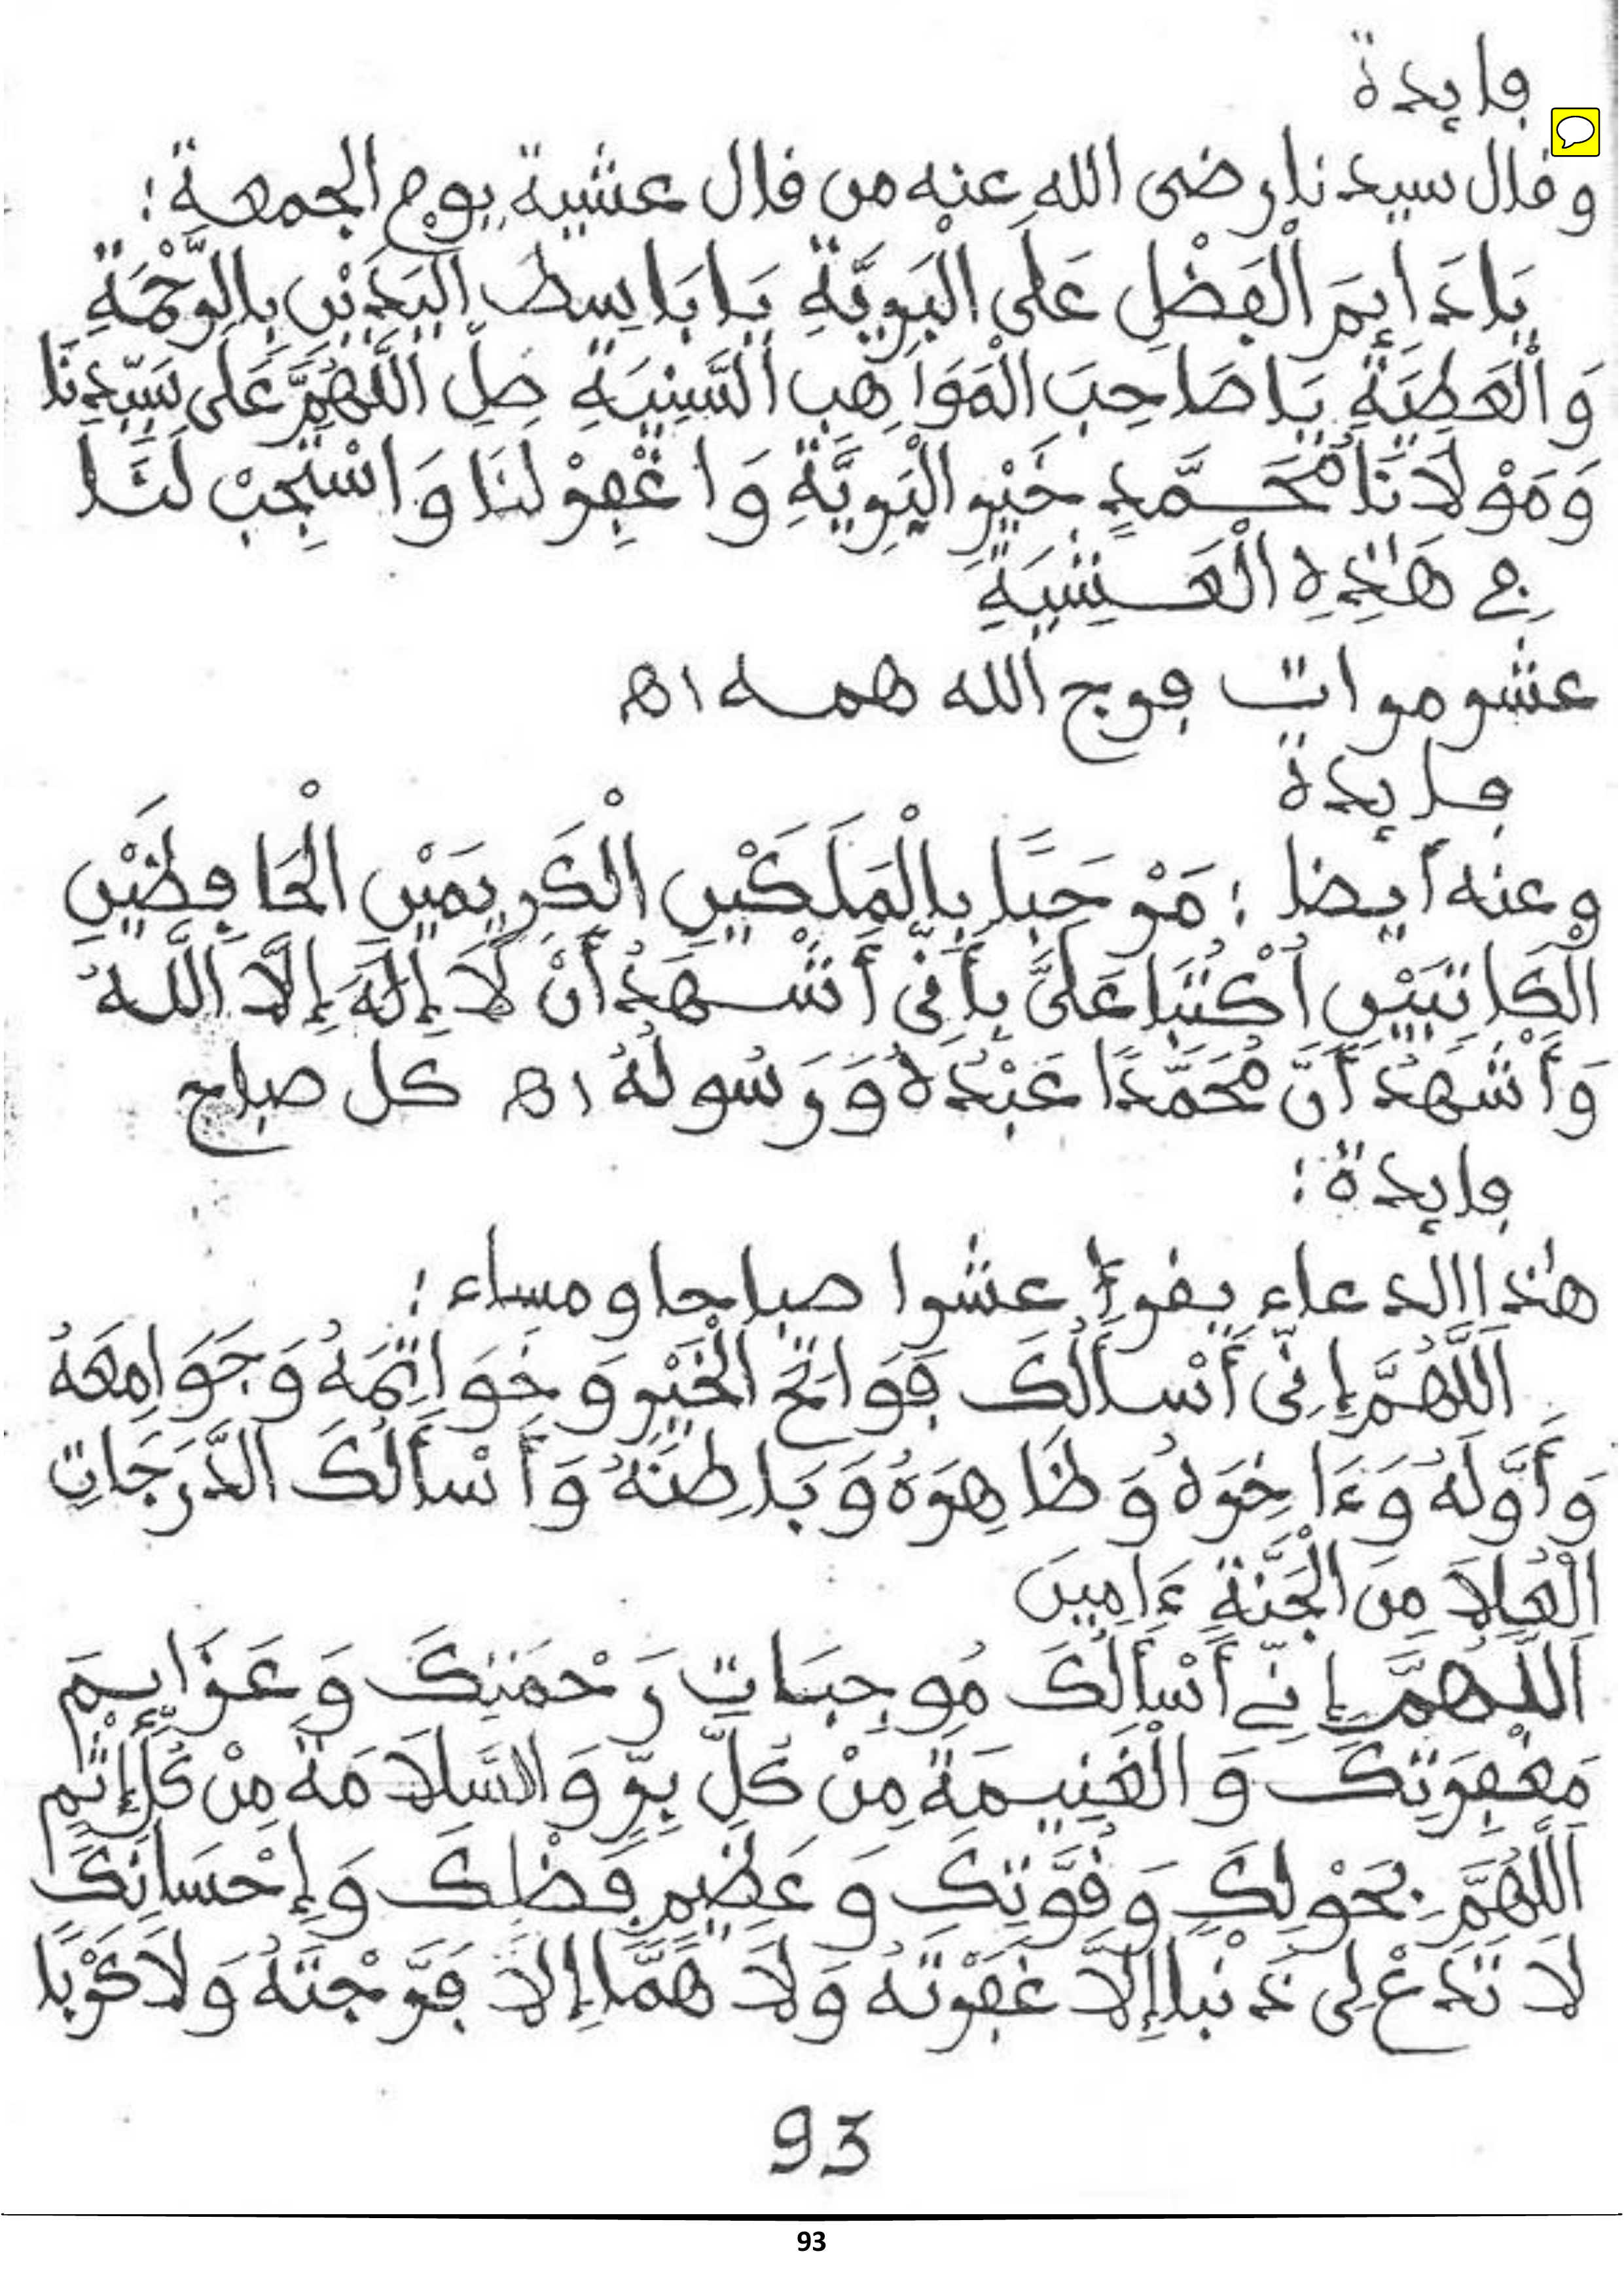 فايدة
وقال سيدنا رضى الله عنه من قال عشية يوم الجمعة:
يَا دَايِمَ الْفَضْلِ عَلَى الْبَرِيَّةِ يَا بَاسِطَ الْيَدَيْنِ بِالرَّحْمَةِ
وَالْعَطِيَّةِ يَا صَاحِبَ الْمَوَاهِبِ السَّنِيَةِ صَلِّ اللَّهُمَّ عَلَى سَيِّدِنَا
وَمَوْلَانَا مُحَمَّدٍ خَيْرِ الْبَرِيَّةِ وَاغْفِرْ لَنَا وَاسْتَجِبْ لَنَا
فِي هَٰذِهِ الْعَشِيَةِ
عشر مرات فرج الله همه اه
فايدة
وعنه أيضا : مَرْحَبًا بِالْمَلَكَيْنِ الْكَرِيمَيْنِ الْحَافِظَيْنِ
الْكَاتِبَيْنِ اُكْتُبَا عَلَيَّ بِأَنِّى أَشْهَدُ أَنْ لَا إِلَٰهَ إِلَّا اللَّهُ
وَأَشْهَدُ أَنَّ مُحَمَّدًا عَبْدُهُ وَرَسُولُهُ اه كل صباح
فايدة :
هٰذا الدعاء يقرأ عشرا صباحا ومساء :
اَللَّهُمَّ إِنِّى أَسْأَلُكَ فَوَاتِحَ الْخَيْرِ وَخَوَاتِمَهُ وَجَوَامِعَهُ
وَأَوَّلَهُ وَءَاخِرَهُ وَظَاهِرَهُ وَبَاطِنَهُ وَأَسْأَلُكَ الدَّرَجَاتِ
الْعُلَا مِنَ الْجَنَّةِ ءَامِينَ
اَللَّهُمَّ إِنِّي أَسْأَلُكَ مُوجِبَاتِ رَحْمَتِكَ وَعَزَايِمَ
مَغْفِرَتِكَ وَالْغَنِيمَةَ مِنْ كُلِّ بِرٍّ وَالسَّلَامَةَ مِنْ كُلِّ إِثْمٍ
اَللَّهُمَّ بِحَوْلِكَ وَقُوَّتِكَ وَعَظِيمِ فَضْلِكَ وَإِحْسَانِكَ
لَا تَدَعْ لِى ذَنْبا إِلَّا غَفَرْتَهُ وَلَا هَمًّا إِلَّا فَرَّجْتَهُ وَلَا كَرْبًا
93
93